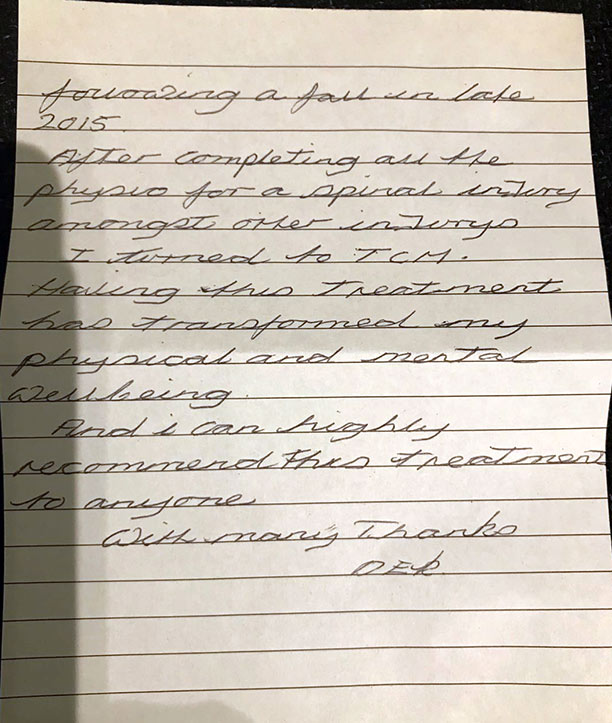 following a fall in late
2015.
After completing all the
physio for a spinal injury
amongst other injurys
I turned to TCM.
Having this treatment
has transformed my
physical and mental
wellbeing.
And i can highly
recommend this treatment
to anyone
With many Thanks
DEK